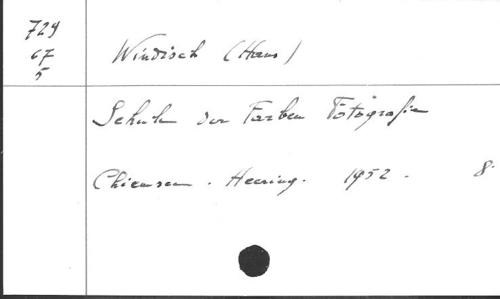 729
67
5
Windisch (Hans)
Schule der Farben Fotografie
Chiemsee . Heering . 1952 . 8.